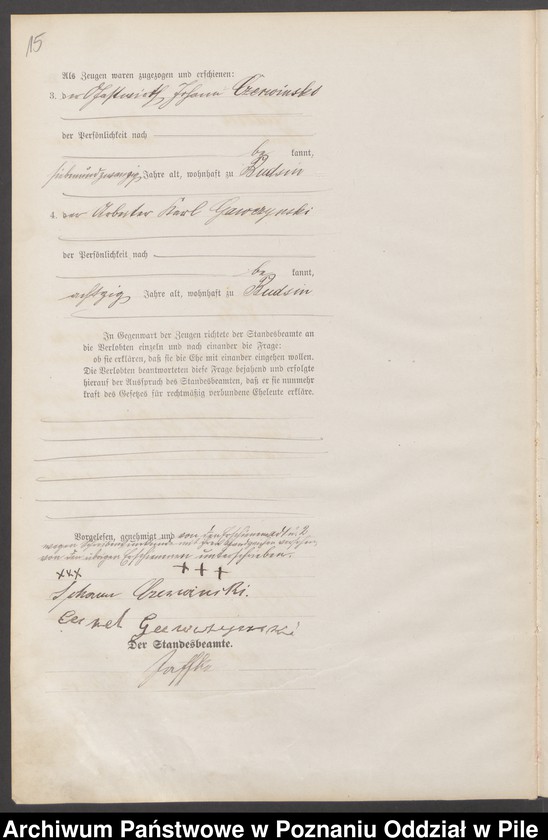 15
Als Zeugen waren zugezogen und erschienen:
3. der Gastwirth Johann Czerwinski
der Persönlichkeit nach
be kannt,
siebenundzwanzig Jahre alt, wohnhaft zu Budsin
4. der Arbeiter Karl Gawczynski
der Persönlichkeit nach
be kannt,
achtzig Jahre alt, wohnhaft zu Budsin
In Gegenwart der Zeugen richtete der Standesbeamte an
die Verlobten einzeln und nach einander die Frage:
ob sie erklären, daß sie die Ehe mit einander eingehen wollen.
Die Verlobten beantworteten diese Frage bejahend und erfolgte
hierauf der Ausspruch des Standesbeamten, daß er sie nunmehr
kraft des Gesetzes für rechtmäßig verbundene Eheleute erkläre.
Vorgelesen, genehmigt und von den Erschienenen
wegen mit ihren Handzeichen versehen,
von den übrigen Erschienenen unterschrieben.
xxx +++
Johann Czerwinski.
Karl
Der Standesbeamte.
Archiwum Państwowe w Poznaniu Oddział w Pile